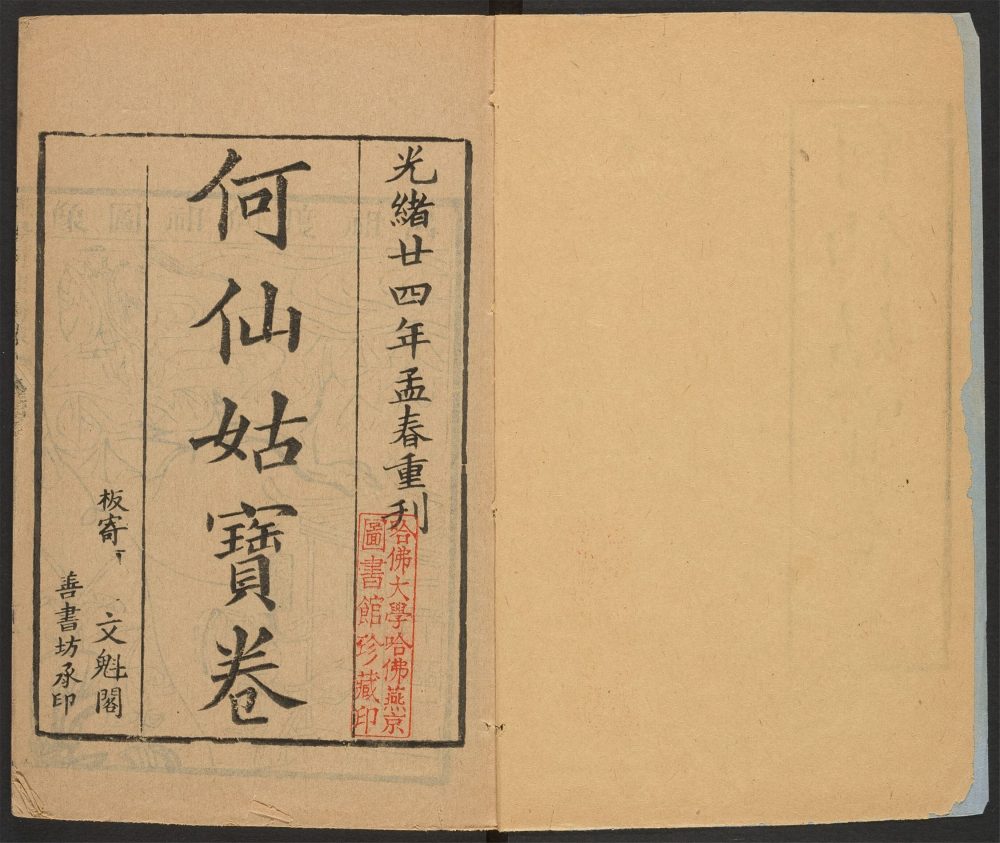 光緒廿四年孟春重刋
何仙姑寶卷
板寄
文魁閣
善書坊承印
哈佛大學哈佛燕京
圖書館珍藏印